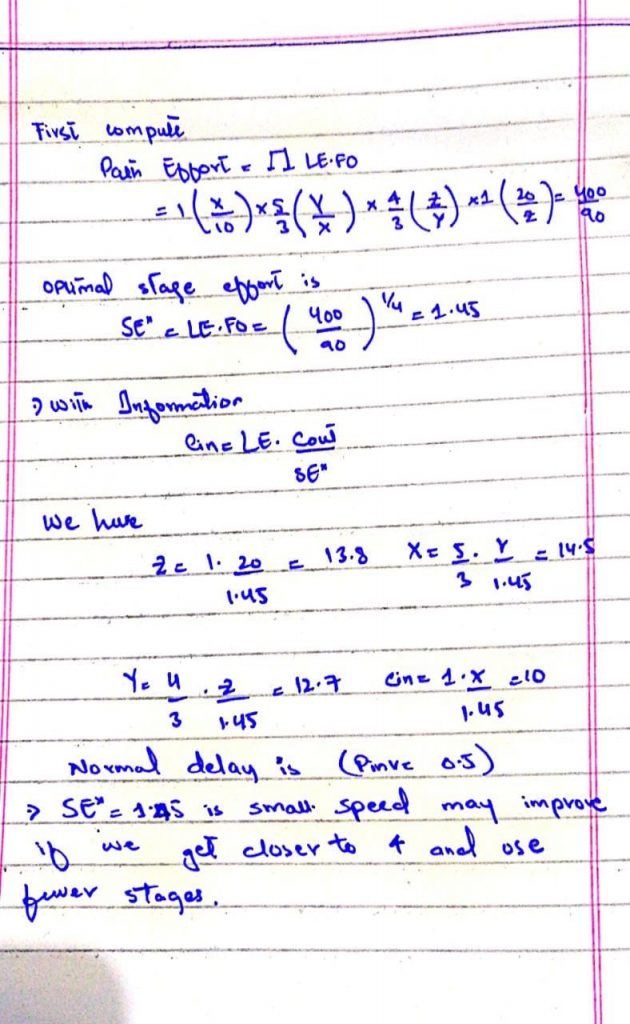 First compute
Path Effort = Π LE.FO
= 1 (x/10) × 5/3 (Y/x) × 4/3 (z/Y) × 1 (20/z) = 400/90
optimal stage effort is
SE* = LE.FO = (400/90)^1/4 = 1.45
⇒ with Information
Cin = LE. Cout/SE*
We have
z = 1. 20/1.45 = 13.8 X = 5/3 . Y/1.45 = 14.5
Y = 4/3 . z/1.45 = 12.7 Cin = 1. x/1.45 = 10
Normal delay is (Pinv = 0.5)
⇒ SE* = 1.45 is small. speed may improve
if we get closer to 4 and use
fewer stages.